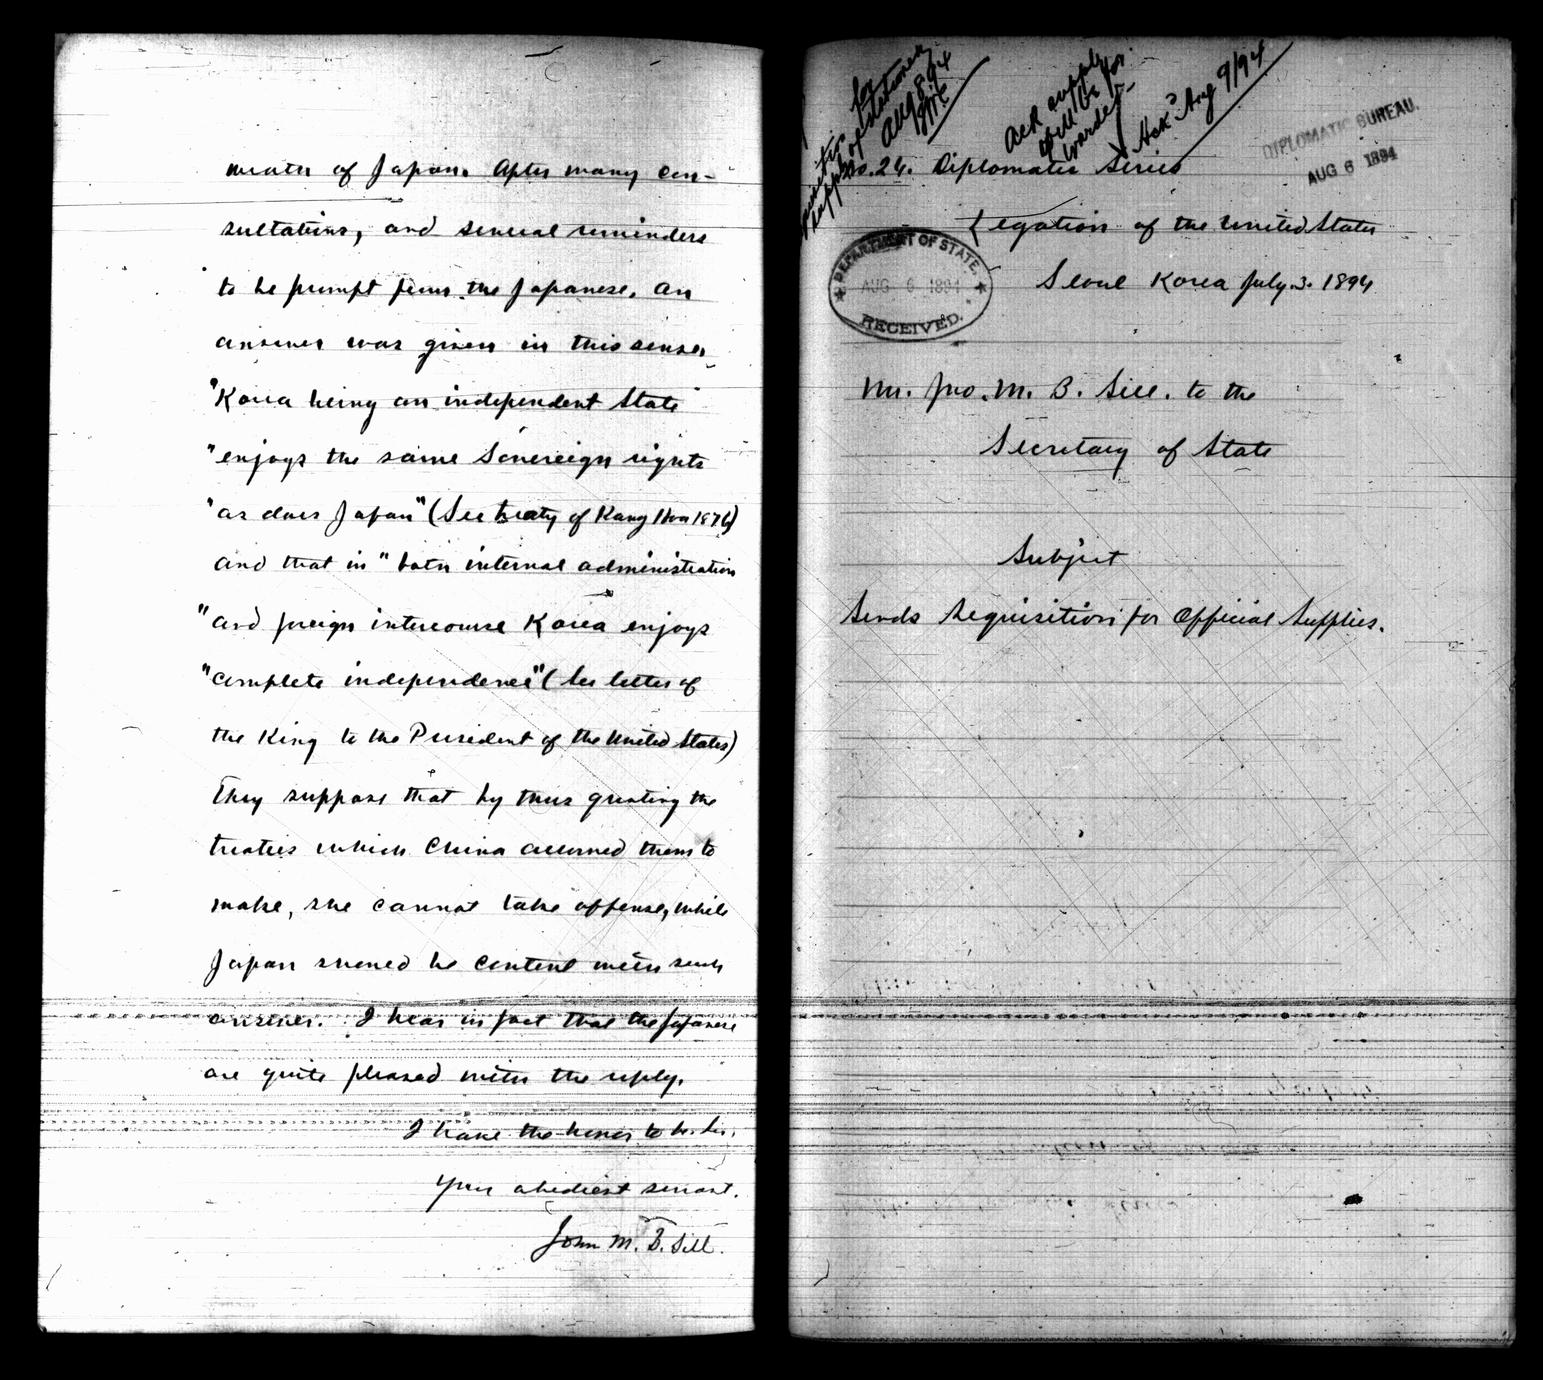 wrath of Japan. After many con-
sultations, and several reminders
to be prompt from the Japanese, an
answer was given in this sense,
"Korea being an independent State
"enjoys the same Sovereign rights
"as does Japan" (See treaty of Kang Hoa 1876)
and that in "both internal administration
"and foreign intercourse Korea enjoys
"complete independence" (See letter of
the King to the President of the United States)
They suppose that by thus quoting the
treaties which China allowed them to
make, she cannot take offense, while
Japan should be content with such
answer. I hear in fact that the Japanese
are quite pleased with the reply.
I have the honor to be. Sir.
Your obedient servant.
John M. B. Sill.
for
of stationery
Aug 8, 94
Ack supply
will be for
warded
Ack'd Aug 9/94
DIPLOMATIC BUREAU.
AUG 6 1894
No. 24. Diplomatic Series
Legation of the United States
Seoul Korea July 3. 1894
DEPARTMENT OF STATE,
AUG 6 1894
RECEIVED.
Mr. Jno. M. B. Sill. to the
Secretary of State
Subject
Sends Requisition for Official Supplies.